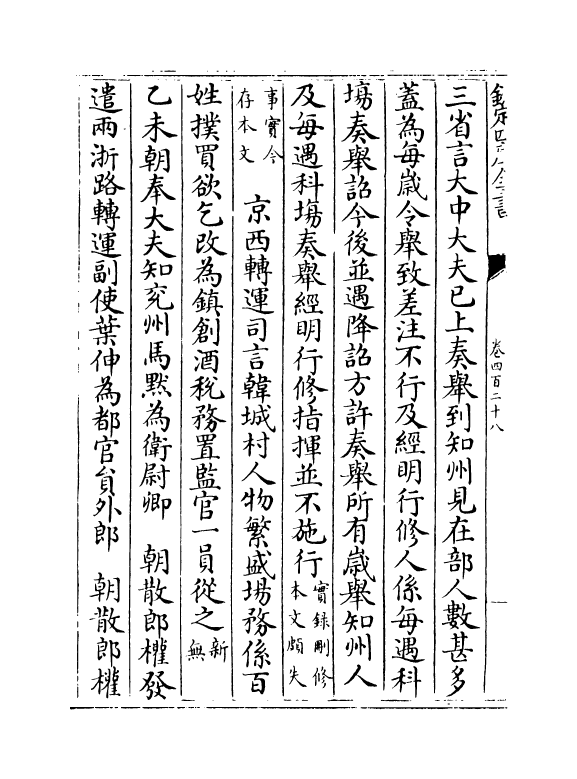 欽定四庫全書
卷四百二十八
三省言大中大夫已上奏舉到知州見在部人數甚多
蓋為每嵗令舉致差注不行及經明行修人係每遇科
塲奏舉詔今後並遇降詔方許奏舉所有嵗舉知州人
及每遇科塲奏舉經明行修指揮並不施行實録刪修本文頗失
事實今存本文　京西轉運司言韓城村人物繁盛場務係百
姓撲買欲乞改為鎮創酒稅務置監官一員從之新無
乙未朝奉大夫知兖州馬黙為衛尉卿　朝散郎權發
遣兩浙路轉運副使葉伸為都官員外郎　朝散郎權